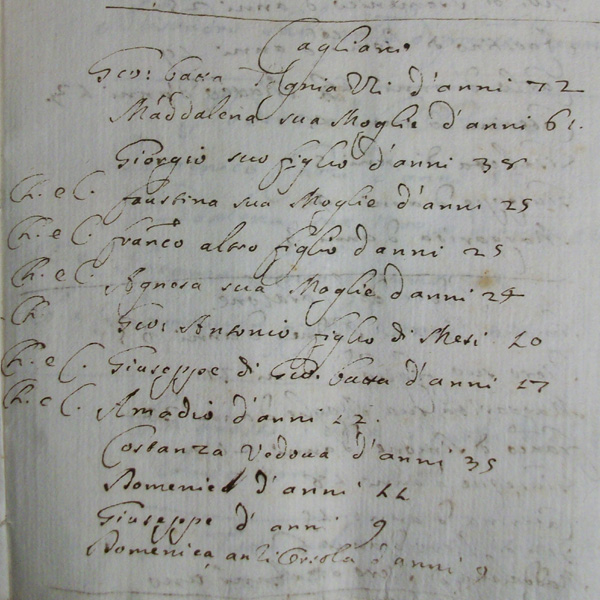 Cagliani
Gio: Batta d'anni 72
Maddalena sua Moglie d'anni 61.
Giorgio suo figlio d'anni 38
Ch. e C. faustina sua Moglie d'anni 25
Ch. e C. franco altro figlio d'anni 25
Ch. e C. Agnesa sua Moglie d'anni 24
Ch Gio: Antonio figlio di Mesi 10
Ch. e C. Giuseppe di Gio: batta d'anni 17
Ch. e C. Amadio d'anni 12.
Costanza Vedova d'anni 35
Domenica d'anni 11
Giuseppe d'anni 9
Domenica Orsola d'anni